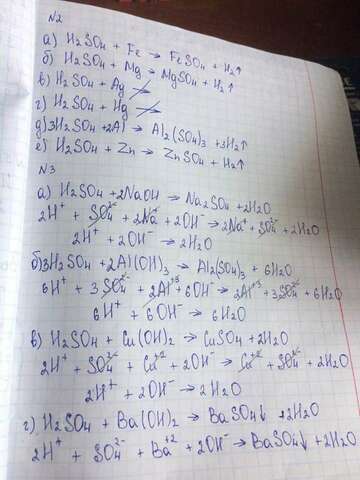 N2
а) H₂SO₄ + Fe → FeSO₄ + H₂↑
б) H₂SO₄ + Mg → MgSO₄ + H₂↑
в) H₂SO₄ + Ag ↛
г) H₂SO₄ + Hg ↛
д) 3H₂SO₄ + 2Al → Al₂(SO₄)₃ + 3H₂↑
е) H₂SO₄ + Zn → ZnSO₄ + H₂↑
N3
а) H₂SO₄ + 2NaOH → Na₂SO₄ + 2H₂O
2H⁺ + SO₄²⁻ + 2Na⁺ + 2OH⁻ → 2Na⁺ + SO₄²⁻ + 2H₂O
2H⁺ + 2OH⁻ → 2H₂O
б) 3H₂SO₄ + 2Al(OH)₃ → Al₂(SO₄)₃ + 6H₂O
6H⁺ + 3SO₄²⁻ + 2Al⁺³ + 6OH⁻ → 2Al⁺³ + 3SO₄²⁻ + 6H₂O
6H⁺ + 6OH⁻ → 6H₂O
в) H₂SO₄ + Cu(OH)₂ → CuSO₄ + 2H₂O
2H⁺ + SO₄²⁻ + Cu⁺² + 2OH⁻ → Cu⁺² + SO₄²⁻ + 2H₂O
2H⁺ + 2OH⁻ → 2H₂O
г) H₂SO₄ + Ba(OH)₂ → BaSO₄↓ + 2H₂O
2H⁺ + SO₄²⁻ + Ba⁺² + 2OH⁻ → BaSO₄↓ + 2H₂O